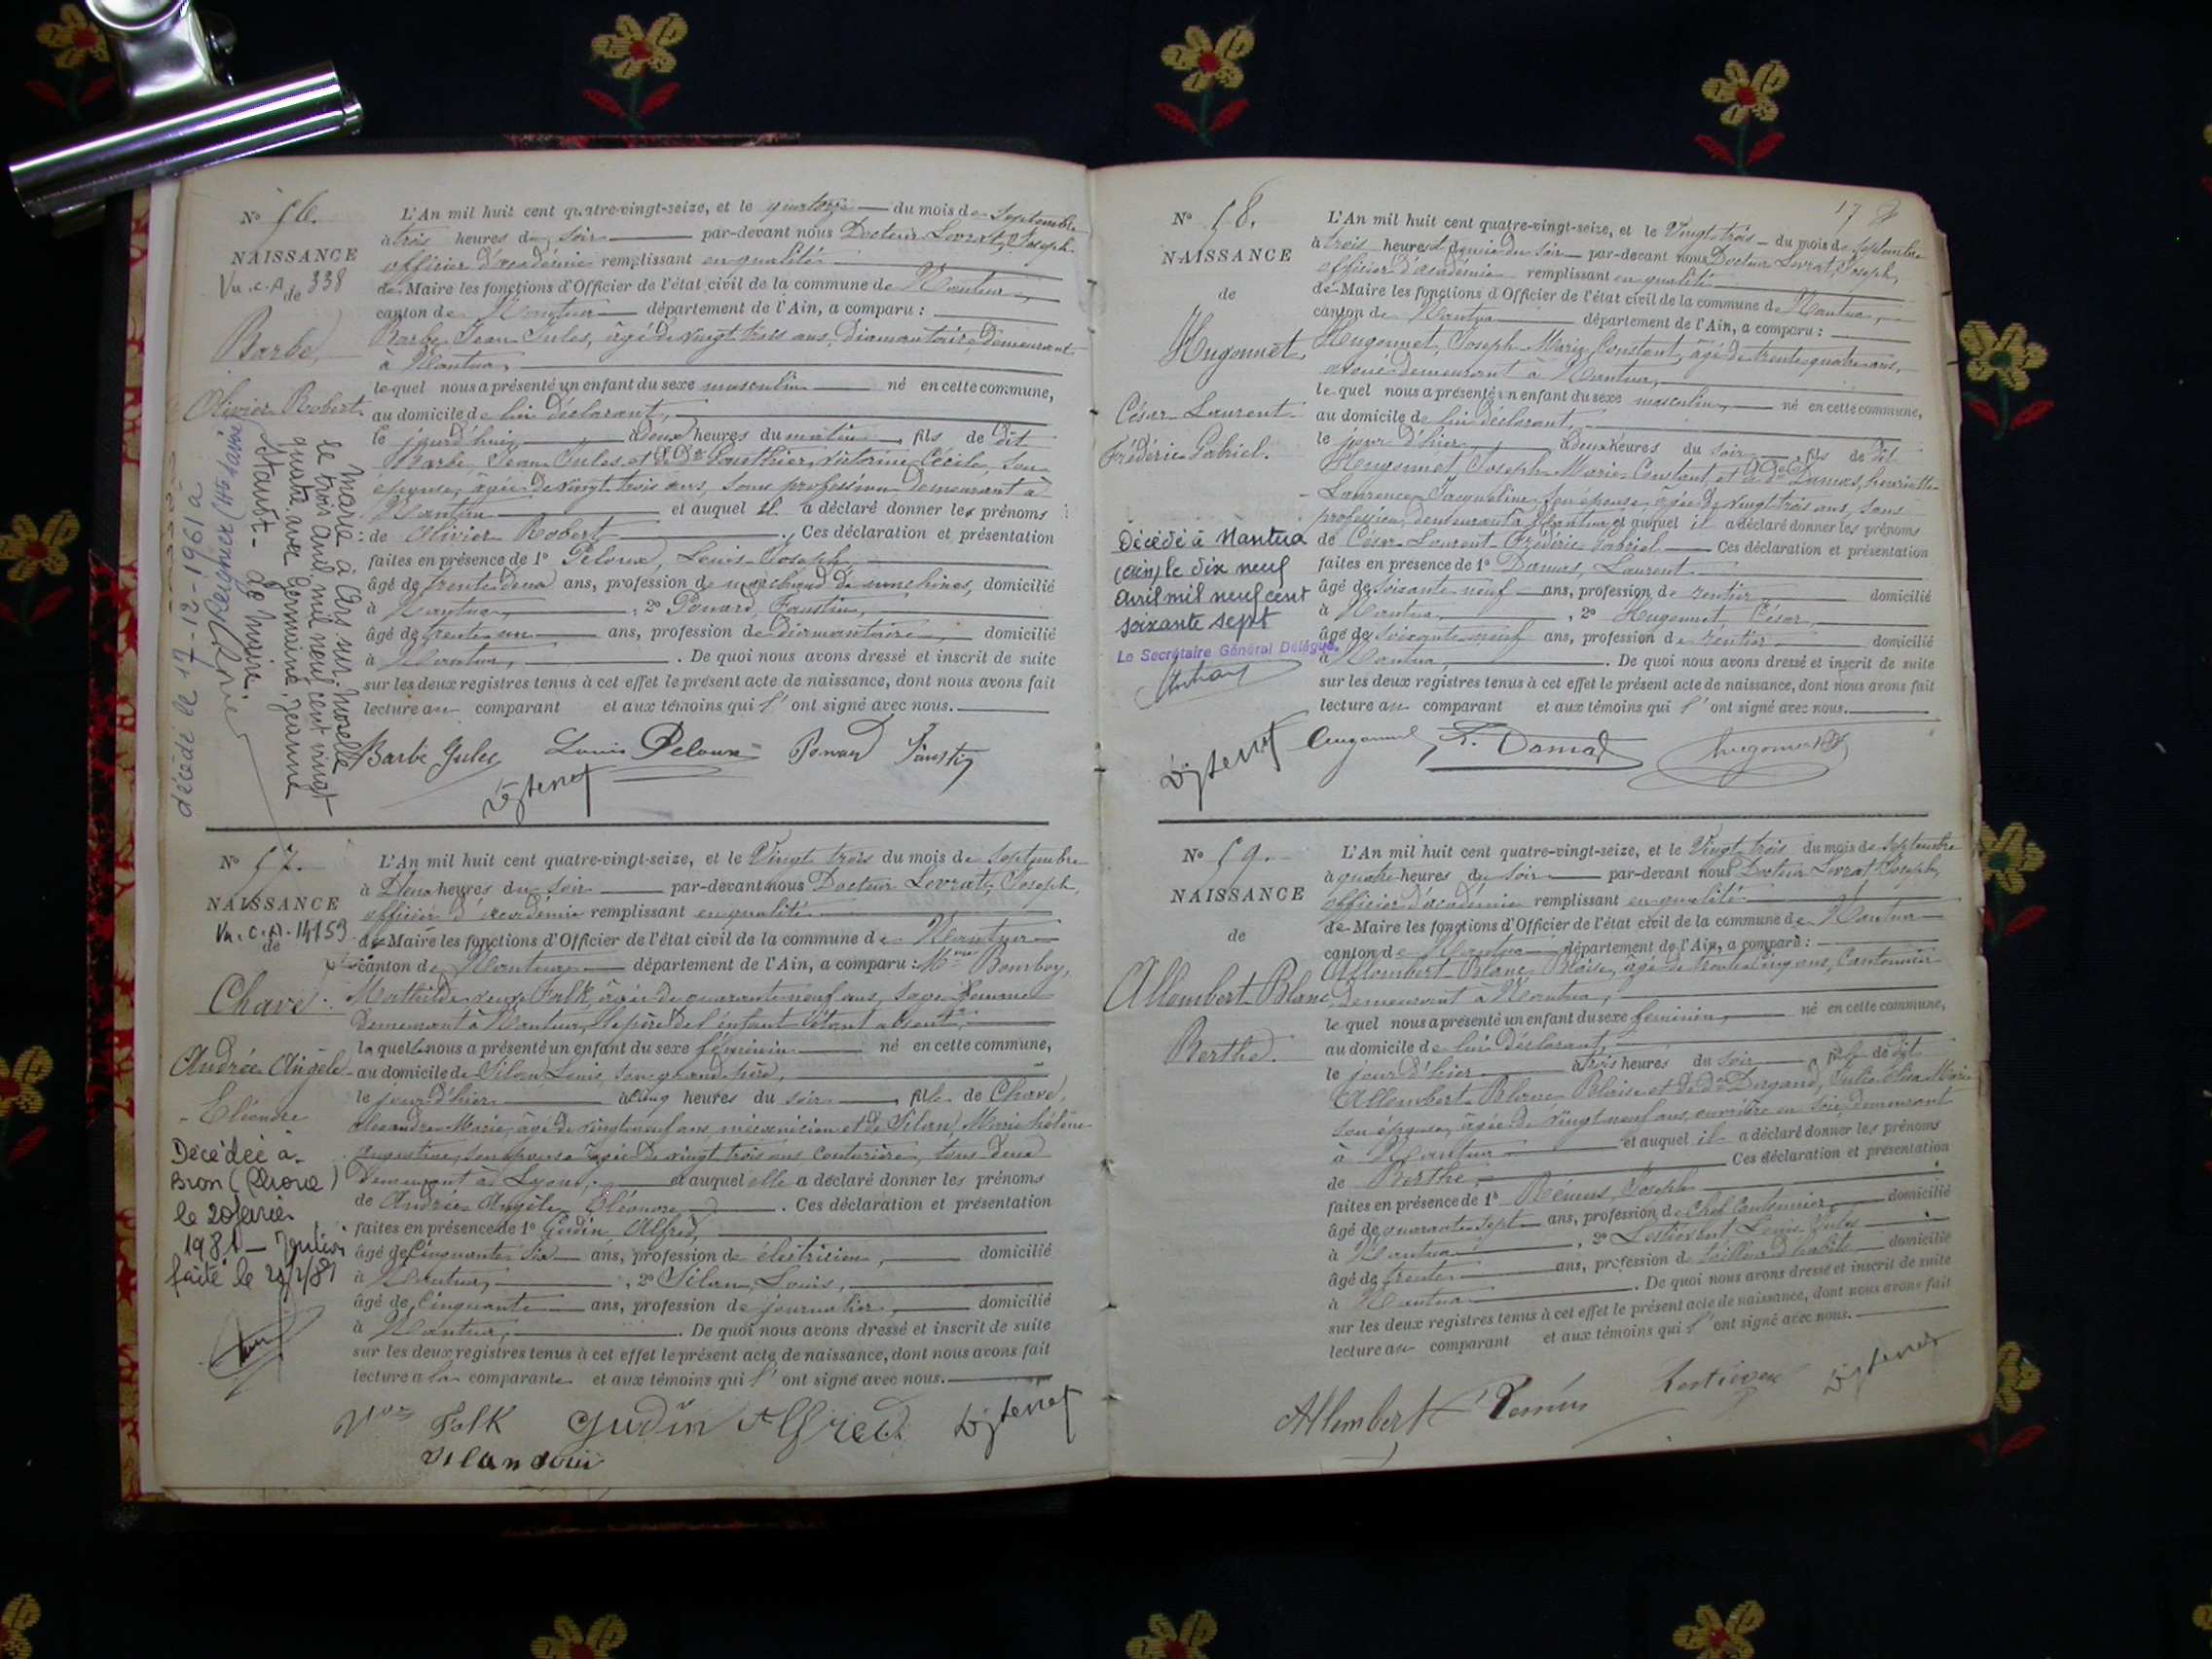 N° 56.
NAISSANCE
Vu. c. A 338
de
Barbe,
Olivier Robert
Marié à Ars sur Moselle
le trois avril mil neuf cent vingt
quatre avec Germaine, Jeanne
Stauft - Le Maire.
décédé le 17-12-1961 à
L'An mil huit cent quatre-vingt-seize, et le quatorze du mois de Septembre
à trois heures du soir par-devant nous Docteur Levrat, Joseph
officier d'académie remplissant en qualité
de Maire les fonctions d'Officier de l'état civil de la commune de Nantua,
canton de Nantua département de l'Ain, a comparu :
Barbe, Jean Jules, âgé de vingt trois ans, Diamantaire, demeurant
à Nantua,
lequel nous a présenté un enfant du sexe masculin né en cette commune,
au domicile de lui déclarant,
le jourd'hui, à deux heures du matin, fils de dit
Barbe, Jean Jules et de De Gauthier, Victorine Cécile, son
épouse, âgée de vingt trois ans, sans profession demeurant à
Nantua et auquel il a déclaré donner les prénoms
de Olivier Robert . Ces déclaration et présentation
faites en présence de 1° Peloux, Louis Joseph,
âgé de trente deux ans, profession de marchand de machines, domicilié
à Nantua, , 2° Ponard, Faustin,
âgé de trente un ans, profession de diamantaire, domicilié
à Nantua, . De quoi nous avons dressé et inscrit de suite
sur les deux registres tenus à cet effet le présent acte de naissance, dont nous avons fait
lecture au comparant et aux témoins qui l'ont signé avec nous.
Barbe Jules Louis Peloux Ponard Faustin
N° 57.
NAISSANCE
Vu. C. A. 14153
de
Chave
Andrée Angèle
Eléonore
Décédée à
Bron (Rhône)
le 20 février
1981 - Mention
faite le
L'An mil huit cent quatre-vingt-seize, et le Vingt trois du mois de Septembre
à Deux heures du soir par-devant nous Docteur Levrat, Joseph,
officier d'académie remplissant en qualité
de Maire les fonctions d'Officier de l'état civil de la commune de Nantua
canton de Nantua département de l'Ain, a comparu : Mme Bomboy,
Mathilde veuve Falk, âgée de quarante neuf ans, sage femme
demeurant à Nantua, le père de l'enfant étant absent,
laquelle nous a présenté un enfant du sexe féminin né en cette commune,
au domicile de Silan Louis, son grand père,
le jour d'hier à cinq heures du soir, fille de Chave,
Alexandre Marie, âgé de vingt neuf ans, mécanicien et de Silan, Marie hélène
Augustine, son épouse âgée de vingt trois ans, couturière, tous deux
demeurant à Lyon, et auquel elle a déclaré donner les prénoms
de Andrée Angèle Eléonore . Ces déclaration et présentation
faites en présence de 1° Gudin, Alfred,
âgé de Cinquante six ans, profession de électricien, domicilié
à Nantua, , 2° Silan, Louis,
âgé de Cinquante ans, profession de journalier, domicilié
à Nantua, . De quoi nous avons dressé et inscrit de suite
sur les deux registres tenus à cet effet le présent acte de naissance, dont nous avons fait
lecture à la comparante et aux témoins qui l'ont signé avec nous.
Vve Falk Gudin Alfred
Silan Louis
17
N° 58.
NAISSANCE
de
Hugonnet
César Laurent
Frédéric Gabriel.
Décédé à Nantua
(Ain) le dix neuf
avril mil neuf cent
soixante sept
Le Secrétaire Général Délégué,
L'An mil huit cent quatre-vingt-seize, et le Vingt trois du mois de Septembre
à trois heures et demie du soir par-devant nous Docteur Levrat Joseph,
officier d'académie remplissant en qualité
de Maire les fonctions d'Officier de l'état civil de la commune de Nantua,
canton de Nantua département de l'Ain, a comparu :
Hugonnet, Joseph Marie Constant, âgé de trente quatre ans,
avoué demeurant à Nantua,
lequel nous a présenté un enfant du sexe masculin, né en cette commune,
au domicile de lui déclarant,
le jour d'hier à deux heures du soir, fils de dit
Hugonnet, Joseph Marie Constant et de De Damas, henriette
Laurence Jacqueline, son épouse âgée de vingt trois ans, sans
profession, demeurant à Nantua, et auquel il a déclaré donner les prénoms
de César Laurent Frédéric Gabriel Ces déclaration et présentation
faites en présence de 1° Damas, Laurent
âgé de soixante neuf ans, profession de rentier domicilié
à Nantua, , 2° Hugonnet, César,
âgé de soixante neuf ans, profession de rentier domicilié
à Nantua, . De quoi nous avons dressé et inscrit de suite
sur les deux registres tenus à cet effet le présent acte de naissance, dont nous avons fait
lecture au comparant et aux témoins qui l'ont signé avec nous.
N° 59.
NAISSANCE
de
Allombert Blanc
Berthe.
L'An mil huit cent quatre-vingt-seize, et le Vingt trois du mois de Septembre
à quatre heures du soir par-devant nous Docteur Levrat Joseph,
officier d'académie remplissant en qualité
de Maire les fonctions d'Officier de l'état civil de la commune de Nantua
canton de Nantua département de l'Ain, a comparu :
Allombert Blanc Blaise, âgé de trente cinq ans, Cantonnier
demeurant à Nantua,
lequel nous a présenté un enfant du sexe féminin, né en cette commune,
au domicile de lui déclarant,
le jour d'hier à trois heures du soir, fille de dit
Allombert Blanc Blaise et de De Dugand, Julie Elisa Marie
son épouse, âgée de vingt neuf ans, ouvrière en soie, demeurant
à Nantua et auquel il a déclaré donner les prénoms
de Berthe, Ces déclaration et présentation
faites en présence de 1° Rémus, Joseph
âgé de quarante sept ans, profession de Chef Cantonnier, domicilié
à Nantua , 2° Lestievent, Louis Jules
âgé de trente ans, profession de tailleur d'habits domicilié
à Nantua . De quoi nous avons dressé et inscrit de suite
sur les deux registres tenus à cet effet le présent acte de naissance, dont nous avons fait
lecture au comparant et aux témoins qui l'ont signé avec nous.
Allombert